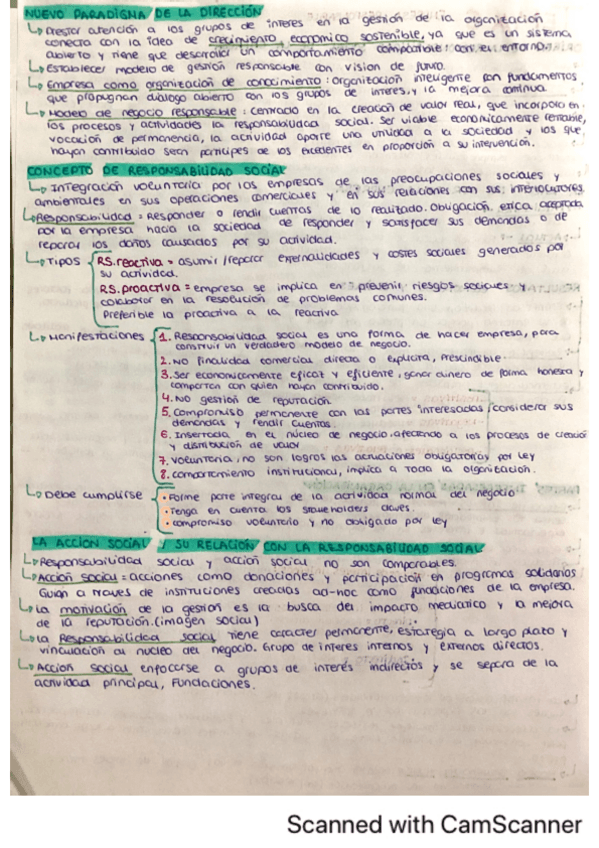 NUEVO PARADIGMA DE LA DIRECCIÓN
↳ Prestar atención a los grupos de interes en la gestión de la organización
conecta con la idea de crecimiento económico sostenible, ya que es un sistema
abierto y tiene que desarrollar un comportamiento compatible con el entorno.
↳ Establecer modelo de gestión responsable con visión de futuro.
↳ Empresa como organización de conocimiento: organización inteligente con fundamentos
que propugnan diálogo abierto con los grupos de interes, y la mejora continua.
↳ Modelo de negocio responsable: centrado en la creación de valor real, que incorpora en
los procesos y actividades la responsabilidad social. Ser viable económicamente rentable,
vocación de permanencia, la actividad aporte una utilidad a la sociedad y los que
hayan contribuido sean partícipes de los excedentes en proporción a su intervención.
CONCEPTO DE RESPONSABILIDAD SOCIAL
↳ Integración voluntaria por las empresas de las preocupaciones sociales y
ambientales en sus operaciones comerciales y en sus relaciones con sus interlocutores
↳ Responsabilidad = Responder o rendir cuentas de lo realizado. Obligación ética aceptada
por la empresa hacia la sociedad de responder y satisfacer sus demandas o de
reparar los daños causados por su actividad.
↳ Tipos RS.reactiva = asumir/reparar externalidades y costes sociales generados por
su actividad.
RS.proactiva = empresa se implica en prevenir riesgos sociales y
colaborar en la resolución de problemas comunes.
Preferible la proactiva a la reactiva
↳ Manifestaciones 1. Responsabilidad social es una forma de hacer empresa, para
construir un verdadero modelo de negocio.
2. NO finalidad comercial directa o explícita, prescindible.
3. Ser económicamente eficaz y eficiente, ganar dinero de forma honesta y
compartan con quien hayan contribuido.
4. NO gestión de reputación.
5. Compromiso permanente con las partes interesadas (considerar sus
demandas y rendir cuentas.
6. Insertada en el núcleo de negocio afectando a los procesos de creación
y distribución de valor
7. voluntaria, no son logros las actuaciones obligatorias por ley
8. comportamiento institucional, implica a toda la organización.
↳ Debe cumplirse • Forme parte integral de la actividad normal del negocio
• Tenga en cuenta los stakeholders claves.
• compromiso voluntario y no obligado por ley
LA ACCIÓN SOCIAL Y SU RELACIÓN CON LA RESPONSABILIDAD SOCIAL
↳ Responsabilidad social y acción social no son comparables.
↳ Acción social = acciones como donaciones y participación en programas solidarios
Guían a través de instituciones creadas ad-hoc como fundaciones de la empresa.
↳ la motivación de la gestión es la busca del impacto mediático y la mejora
de la reputación. (imagen social)
↳ la Responsabilidad social tiene carácter permanente, estrategia a largo plazo y
vinculación al núcleo del negocio. Grupo de interes internos y externos directos.
↳ Acción social enfocarse a grupos de interés indirectos y se separa de la
actividad principal, Fundaciones.
Scanned with CamScanner